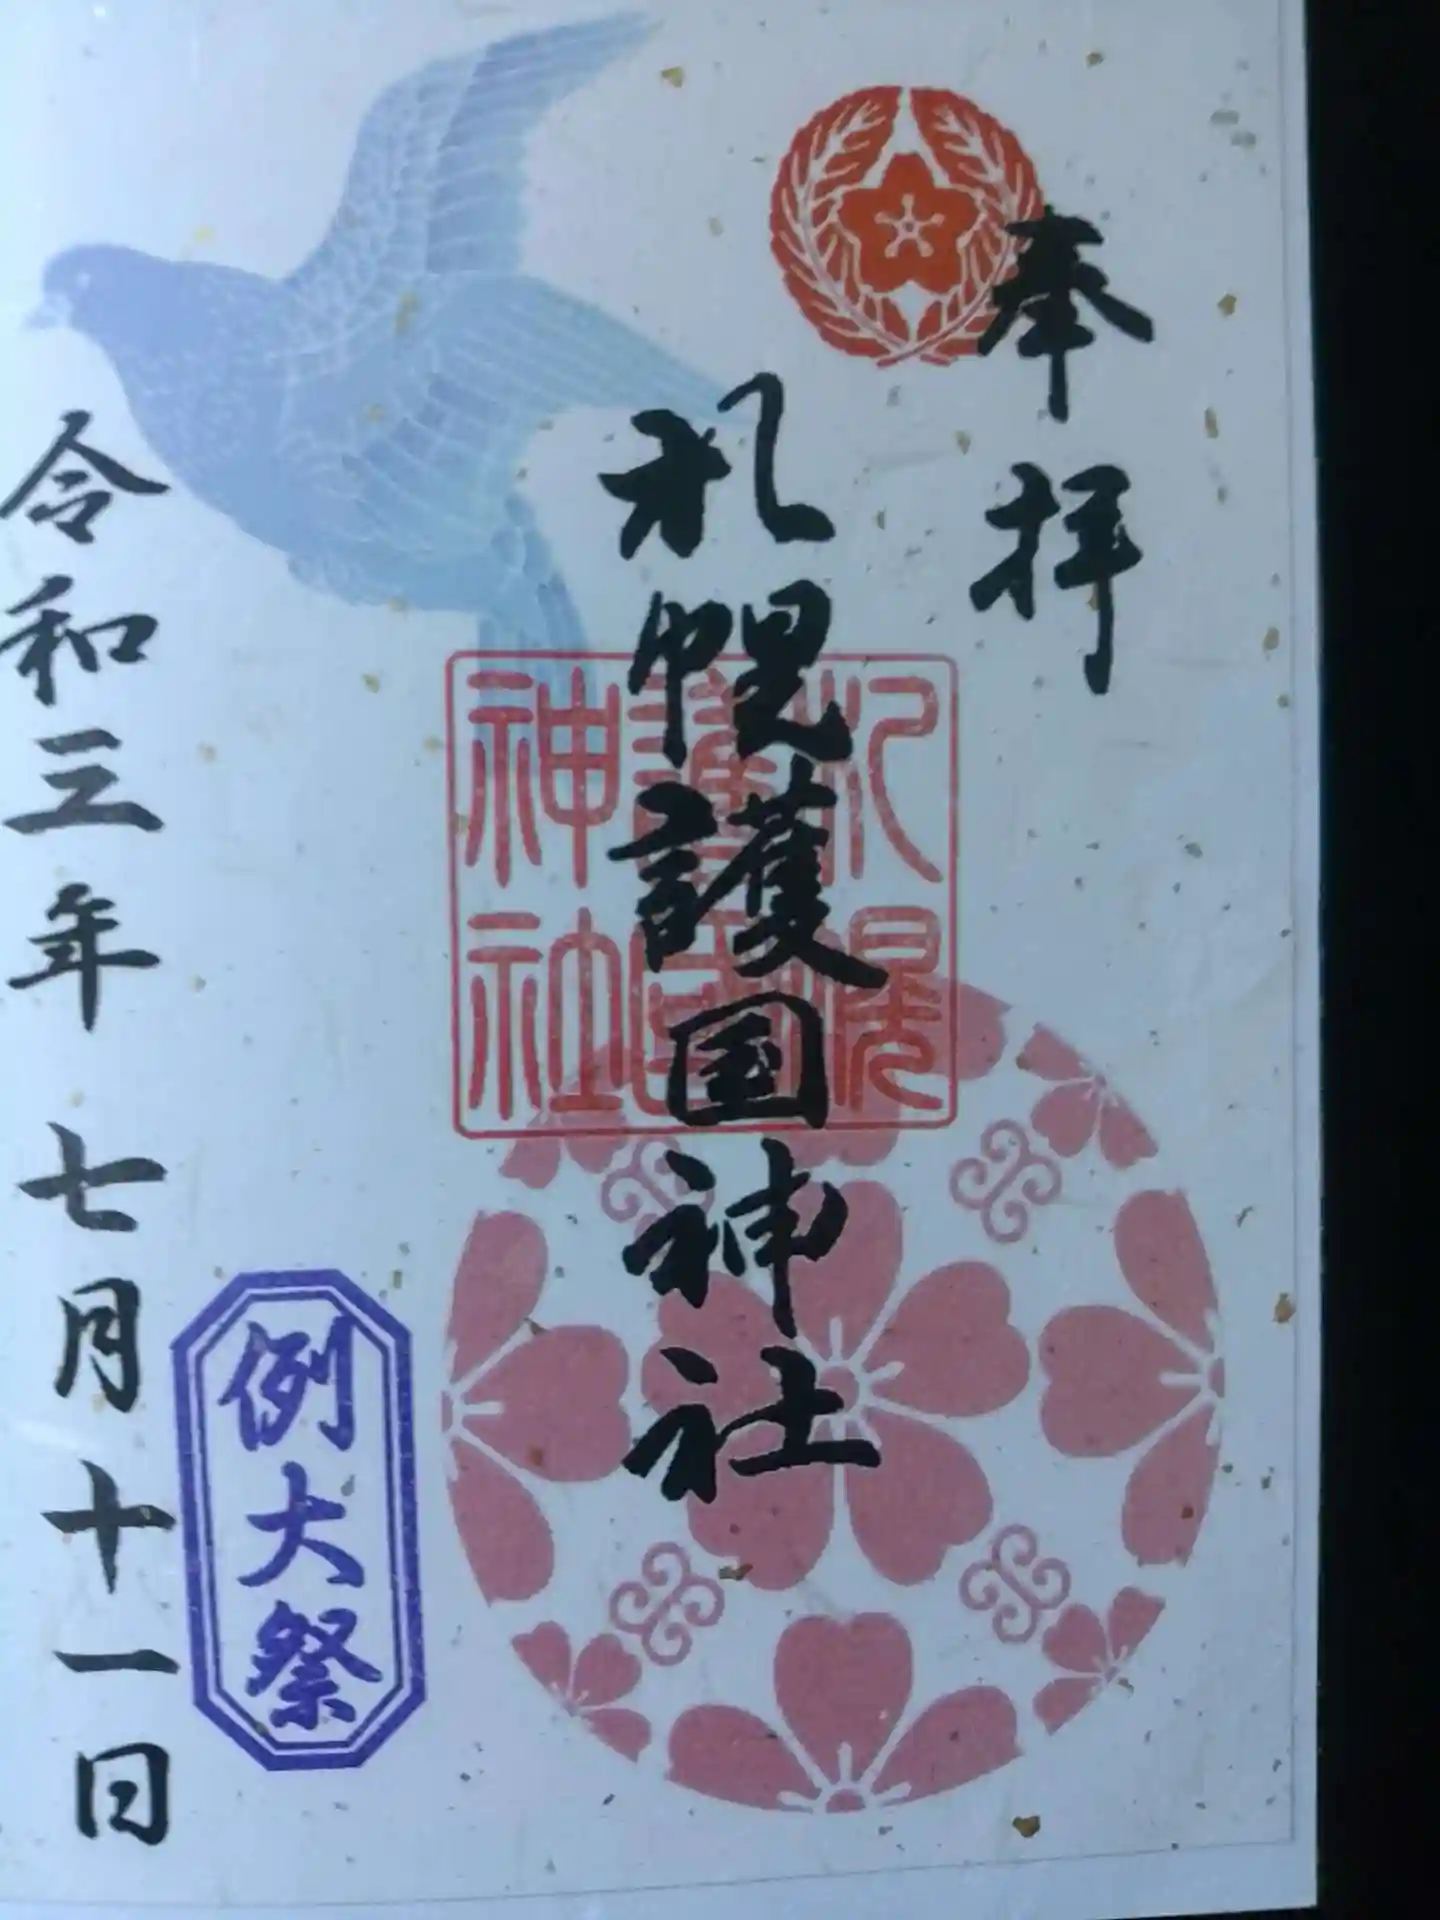 奉拝
札幌護国神社
札幌
護国
神社
例大祭
令和三年 七月十一日